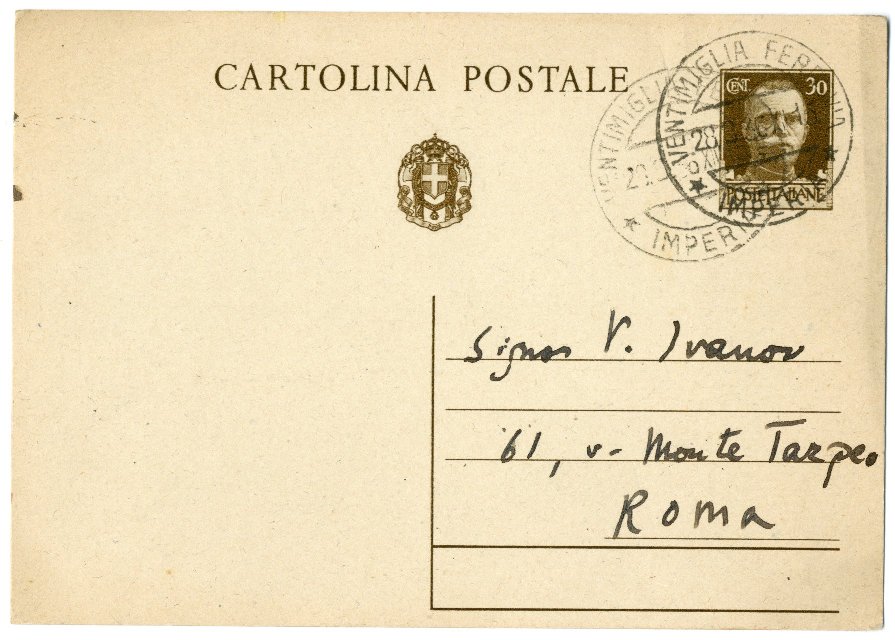 CARTOLINA POSTALE
VENTIMIGLIA
IMPERIA
VENTIMIGLIA FERROVIA
28
IMPERIA
CENT. 30
POSTE ITALIANE
Signor V. Ivanov
61, v. Monte Tarpeo
Roma